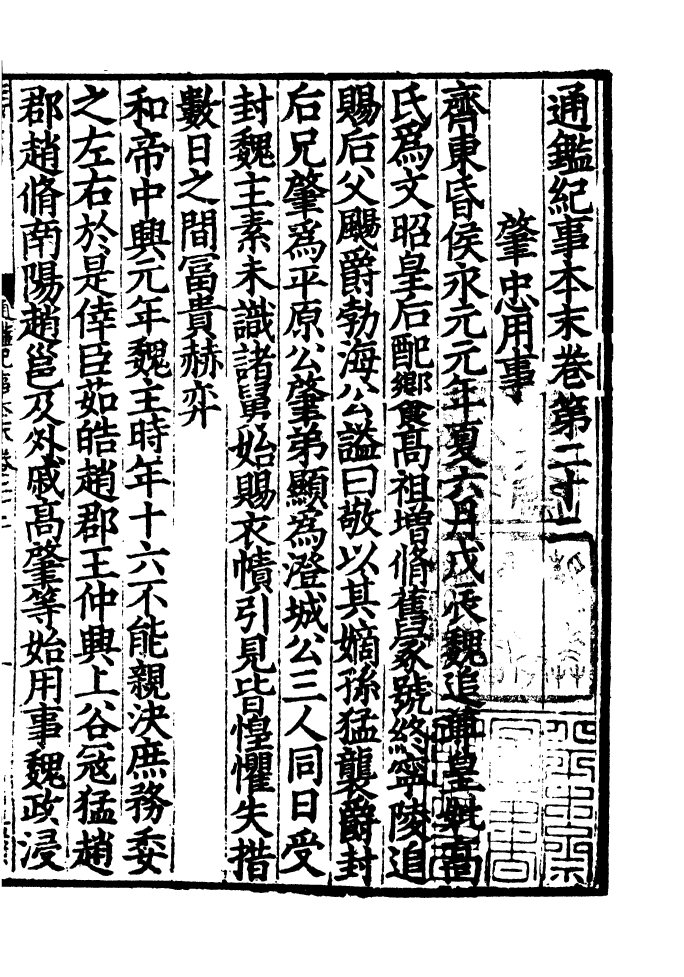 通鑑紀事本末卷第二十二
肇忠用事
齊東昏侯永元元年夏六月戊辰魏追尊皇妣髙
氏爲文昭皇后配鄉食髙祖増脩舊冢號終寧陵追
賜后父颺爵勃海公謚曰敬以其嫡孫猛襲爵封
后兄肇爲平原公肇弟顯爲澄城公三人同日受
封魏主素未識諸舅始賜衣幘引見皆惶懼失措
數日之間冨貴赫弈
和帝中興元年魏主時年十六不能親決庶務委
之左右於是倖臣茹皓趙郡王仲興上谷㓂猛趙
郡趙脩南陽趙邕及外戚髙肇等始用事魏政浸